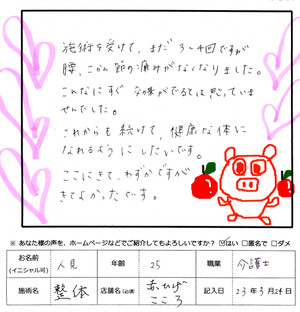 施術を受けて、まだ3〜4回ですが
腰、こかん節の痛みがなくなりました。
こんなにすぐ効果がでるとは思っていま
せんでした。
これからも続けて、健康な体に
なれるようにしたいです。
ここにきて、わずかですが
きてよかったです。
※ あなた様の声を、ホームページなどでご紹介してもよろしいですか？ ☑はい □匿名で □ダメ
お名前 (イニシャル可) 人見 年齢 25 職業 介護士
施術名 整体 店舗名(必須) 赤ひげ こころ 記入日 23年3月24日